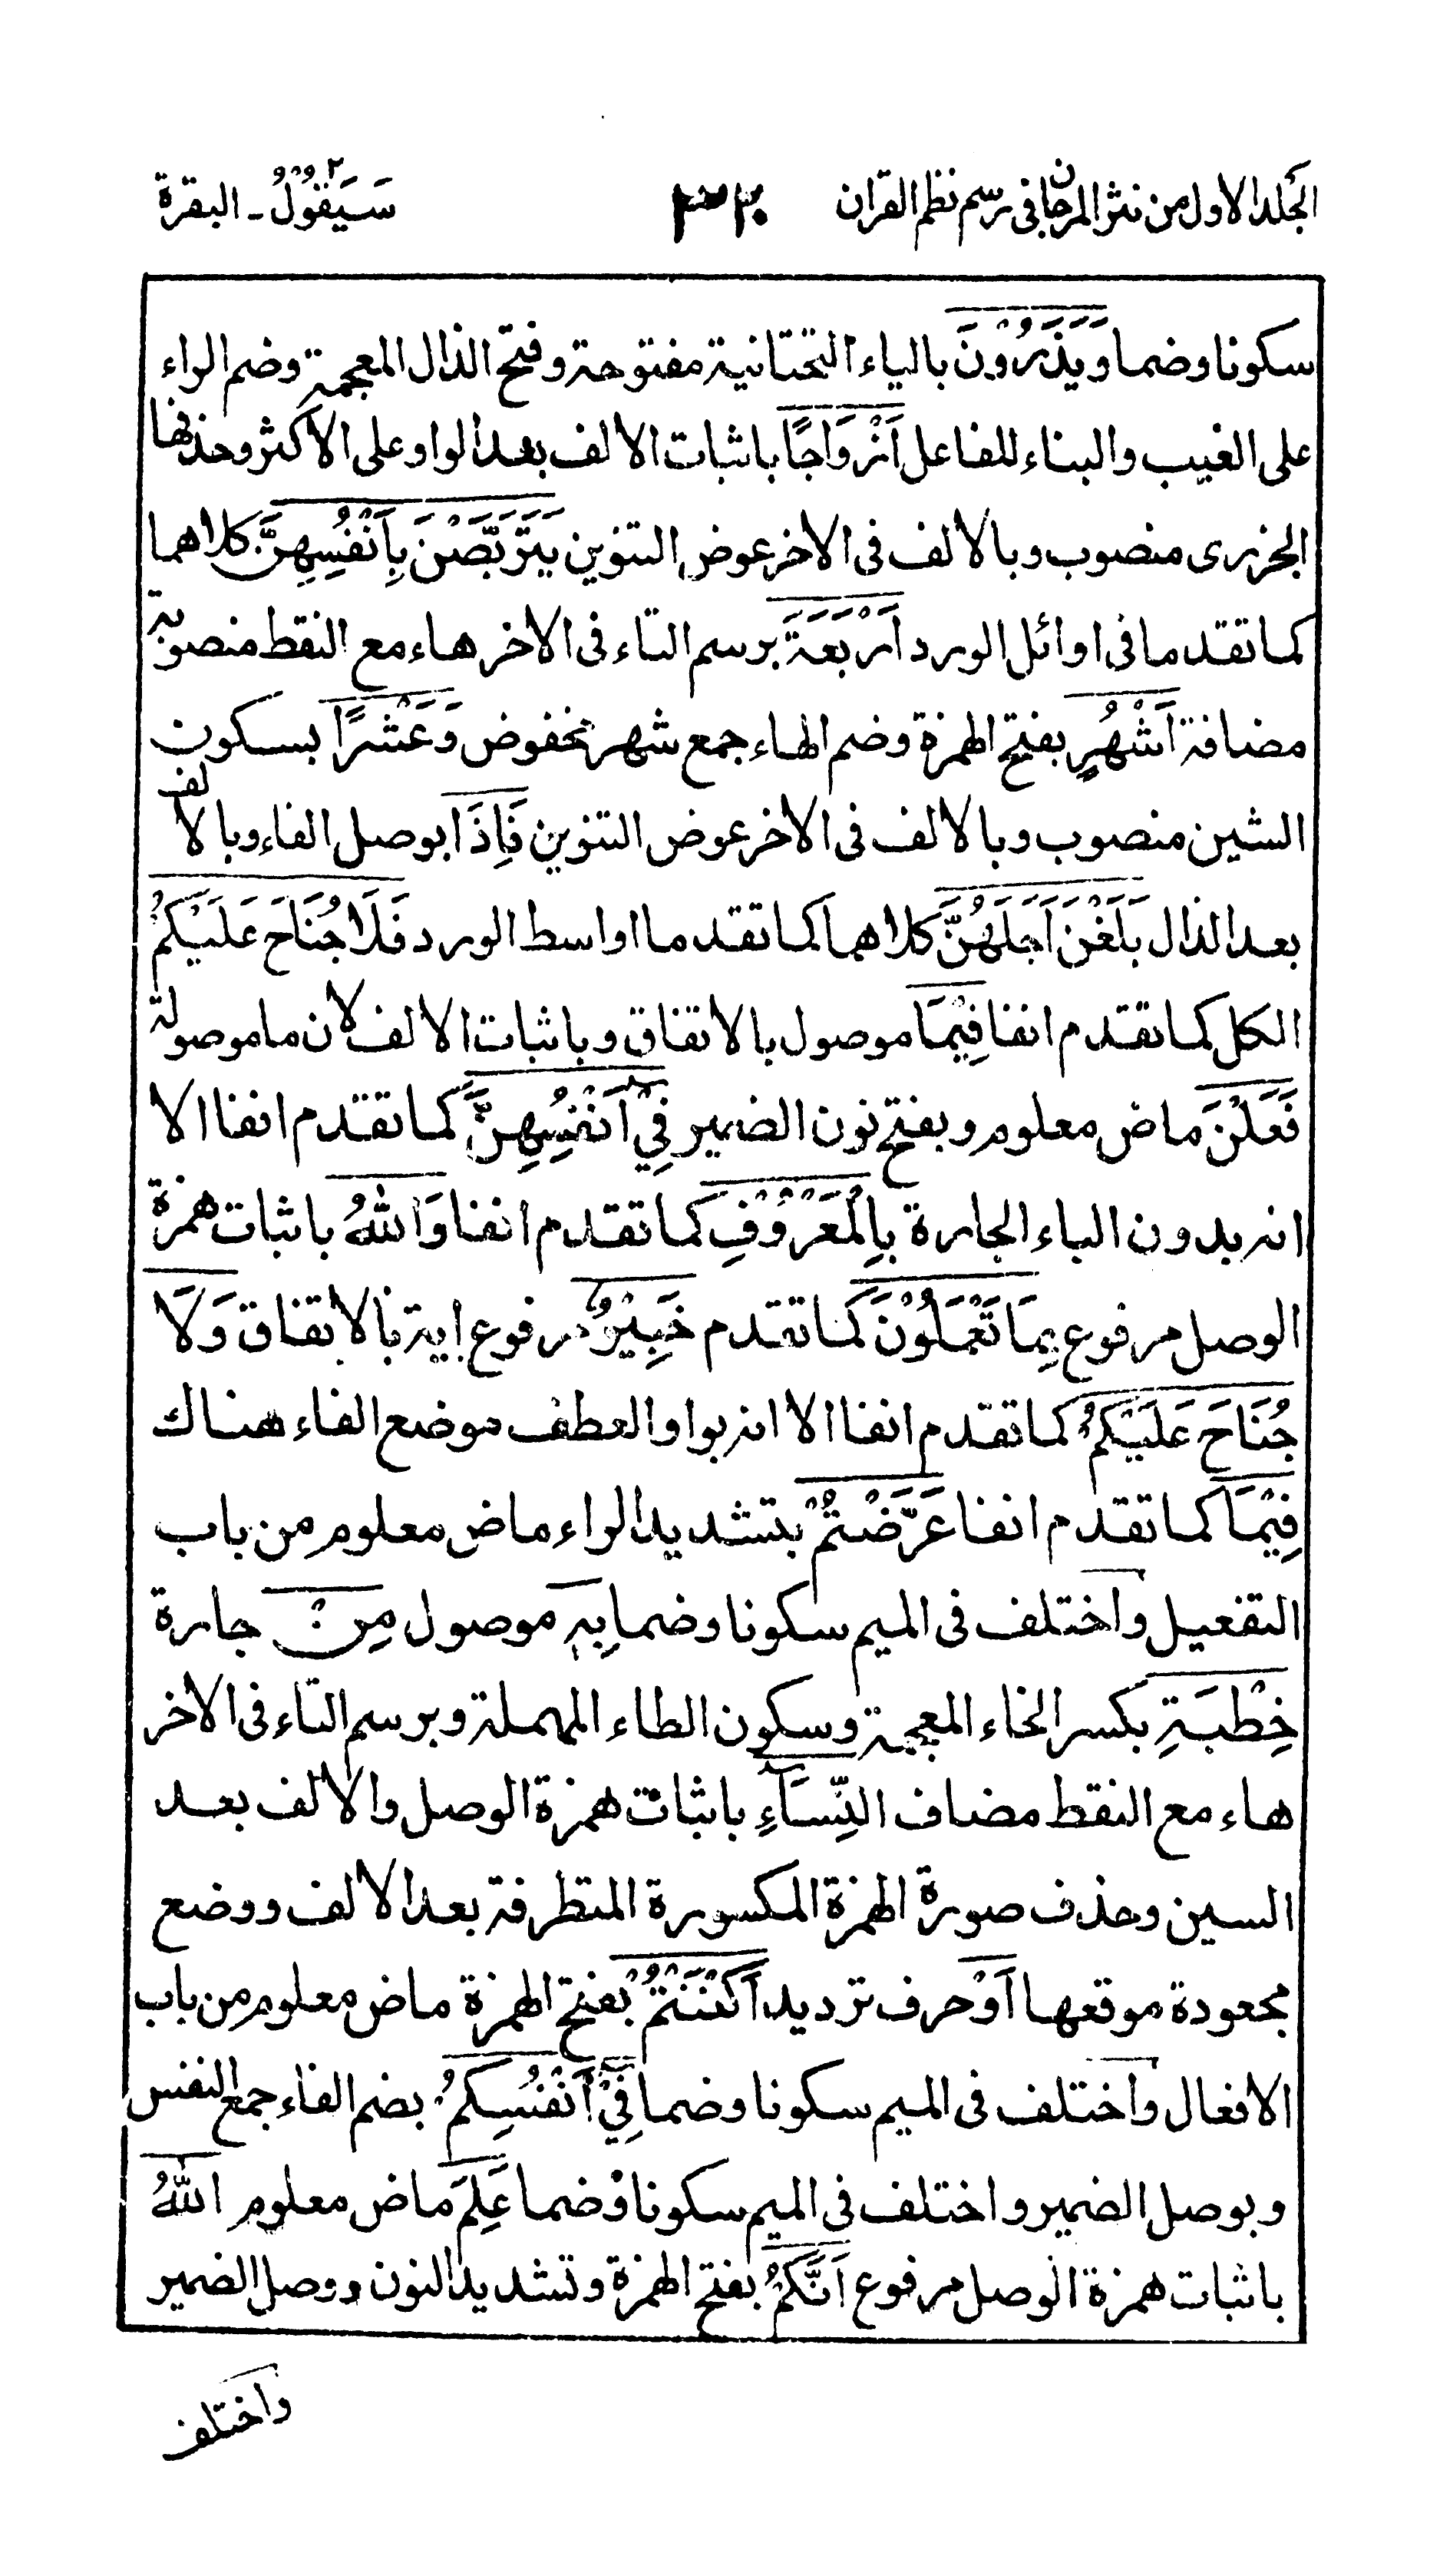 الجلد الاول من نثر المرجان فى رسم نظم القران
سَيَقُوْلُ ٢ - البقرة
سكونا وضما وَيَذَرُوْنَ بالياء التحتانية مفتوحة وفتح الذال المعجمة وضم الراء
على الغيب والبناء للفاعل اَزْوَاجًا باثبات الالف بعد الواو على الاكثر وحذفها
الجزرى منصوب وبالالف فى الاخر عوض التنوين يَتَرَبَّصْنَ بِاَنْفُسِهِنَّ كلاهما
كما تقدما فى اوائل الورد اَرْبَعَةَ برسم التاء فى الاخر هاء مع النقط منصوبة
مضافة اَشْهُرٍ بفتح الهمزة وضم الهاء جمع شهر مخفوض وَعَشْرًا بسكون
الشين منصوب وبالالف فى الاخر عوض التنوين فَاِذَا بوصل الفاء وبالالف
بعد الذال بَلَغْنَ اَجَلَهُنَّ كلاهما كما تقدما اواسط الورد فَلَا جُنَاحَ عَلَيْكُمْ
الكل كما تقدم انفا فِيْمَا موصول بالاتفاق وباثبات الالف لان ما موصولة
فَعَلْنَ ماض معلوم وبفتح نون الضمير فِيْٓ اَنْفُسِهِنَّ كما تقدم انفا الا
انه بدون الباء الجارة بِالْمَعْرُوْفِ كما تقدم انفا وَاللّٰهُ باثبات همزة
الوصل مرفوع بِمَا تَعْمَلُوْنَ كما تقدم خَبِيْرٌ مرفوع اية بالاتفاق وَلَا
جُنَاحَ عَلَيْكُمْ كما تقدم انفا الا انه بواو العطف موضع الفاء هناك
فِيْمَا كما تقدم انفا عَرَّضْتُمْ بتشديد الراء ماض معلوم من باب
التفعيل واختلف فى الميم سكونا وضما بِهٖ موصول مِنْ جارة
خِطْبَةِ بكسر الخاء المعجمة وسكون الطاء المهملة وبرسم التاء فى الاخر
هاء مع النقط مضاف النِّسَآءِ باثبات همزة الوصل والالف بعد
السين وحذف صورة الهمزة المكسورة المتطرفة بعد الالف ووضع
مجعودة موقعها اَوْ حرف ترديد اَكْنَنْتُمْ بفتح الهمزة ماض معلوم من باب
الافعال واختلف فى الميم سكونا وضما فِيْٓ اَنْفُسِكُمْ بضم الفاء جمع النفس
وبوصل الضمير واختلف فى الميم سكونا وضما عَلِمَ ماض معلوم اللّٰهُ
باثبات همزة الوصل مرفوع اَنَّكُمْ بفتح الهمزة وتشديد النون ووصل الضمير
واختلف